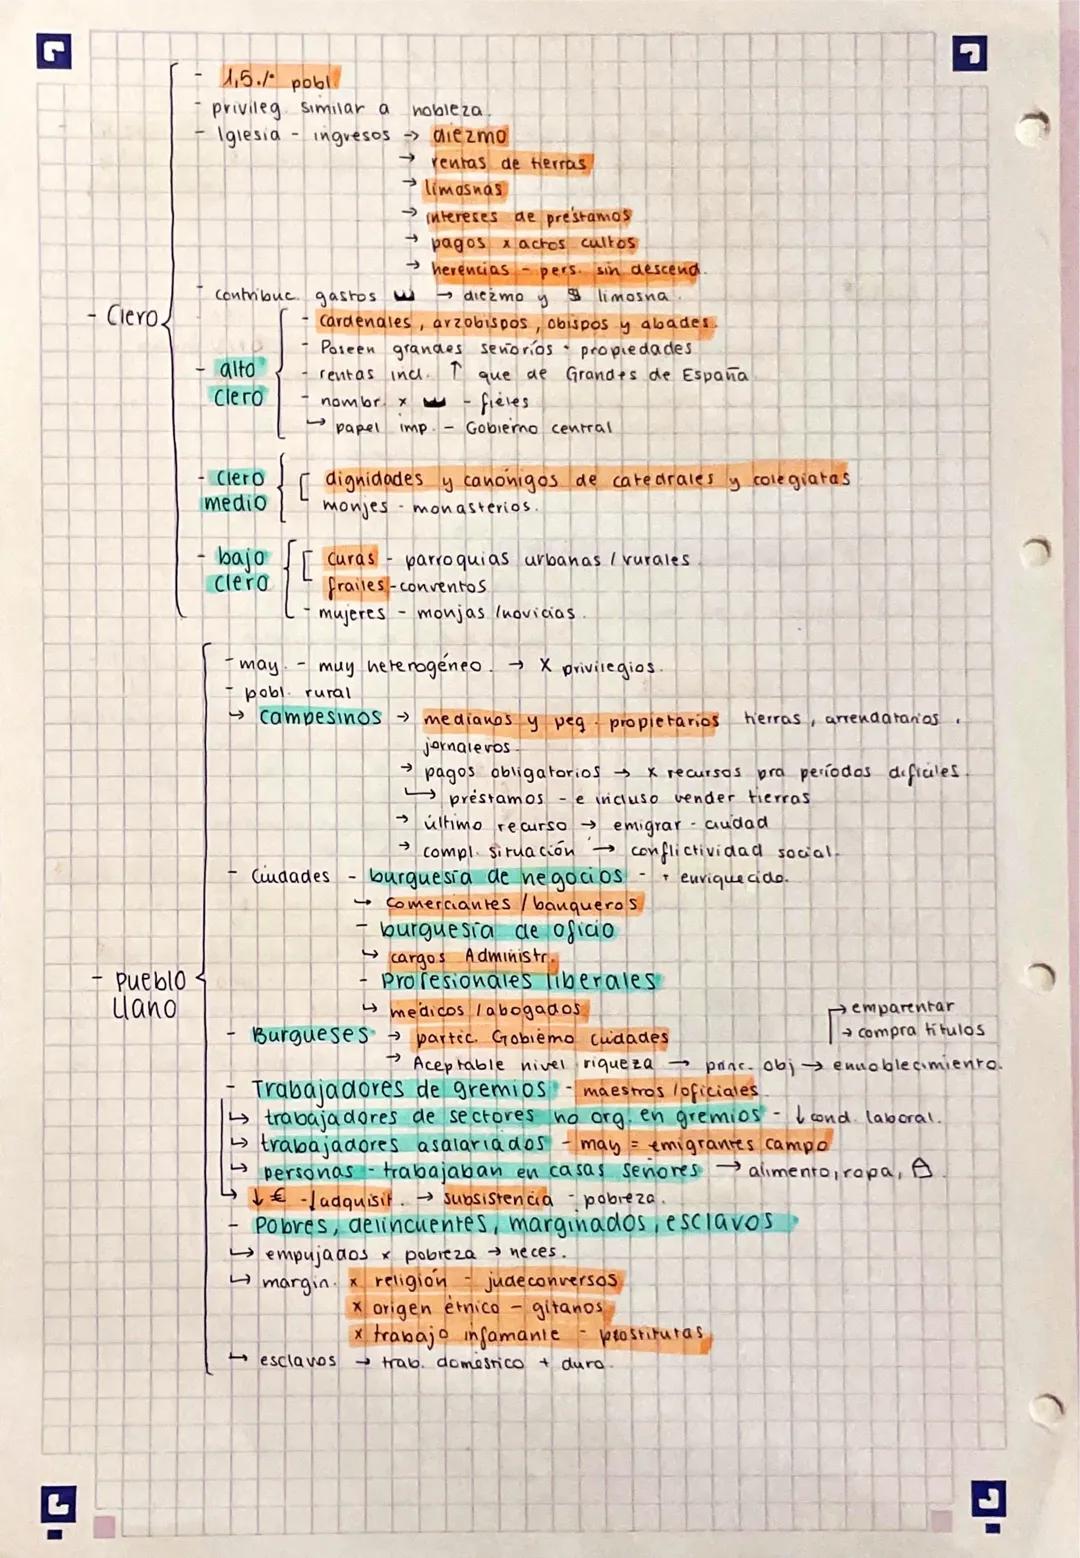 - 1,5 ./· pobl.
- privileg. similar a nobleza.
- Iglesia - ingresos → diezmo
→ rentas de tierras
→ limosnas
→ intereses de préstamos
→ pagos x actos cultos
→ herencias - pers. sin descend.
- contribuc. gastos 👑 → diezmo y limosna.
- Clero
- cardenales, arzobispos, obispos y abades.
- Poseen grandes señoríos - propiedades
- alto clero
- rentas incl. ↑ que de Grandes de España
- nombr. x 👑 - fieles
↳ papel imp. - Gobierno central
- clero medio
dignidades y canónigos de catedrales y colegiatas
monjes - monasterios.
- bajo clero
curas - parroquias urbanas / rurales.
frailes - conventos
- mujeres - monjas / novicias.
- may. - muy heterogéneo. → X privilegios.
- pobl. rural
↳ campesinos → medianos y peq. propietarios tierras, arrendatarios,
jornaleros.
→ pagos obligatorios → x recursos pra períodos difíciles.
↳ préstamos - e incluso vender tierras
→ último recurso → emigrar - ciudad
→ compl. situación → conflictividad social.
- Ciudades - burguesía de negocios - + enriquecido.
↳ comerciantes / banqueros
- burguesía de oficio
↳ cargos Administr.
- Pueblo llano
- Profesionales liberales
↳ médicos / abogados
- Burgueses → partic. Gobierno ciudades
→ emparentar
→ compra títulos
→ Aceptable nivel riqueza → princ. obj → ennoblecimiento.
- Trabajadores de gremios - maestros / oficiales.
↳ trabajadores de sectores no org. en gremios - ↓ cond. laboral.
↳ trabajadores asalariados - may = emigrantes campo
↳ personas - trabajaban en casas señores → alimento, ropa,
↳ ↓ € - ↓ adquisit. → subsistencia - pobreza.
- Pobres, delincuentes, marginados, esclavos
↳ empujados x pobreza → neces.
↳ margin. x religión - judeconversos
x origen étnico - gitanos
x trabajo infamante - prostitutas
↳ esclavos → trab. doméstico + duro.